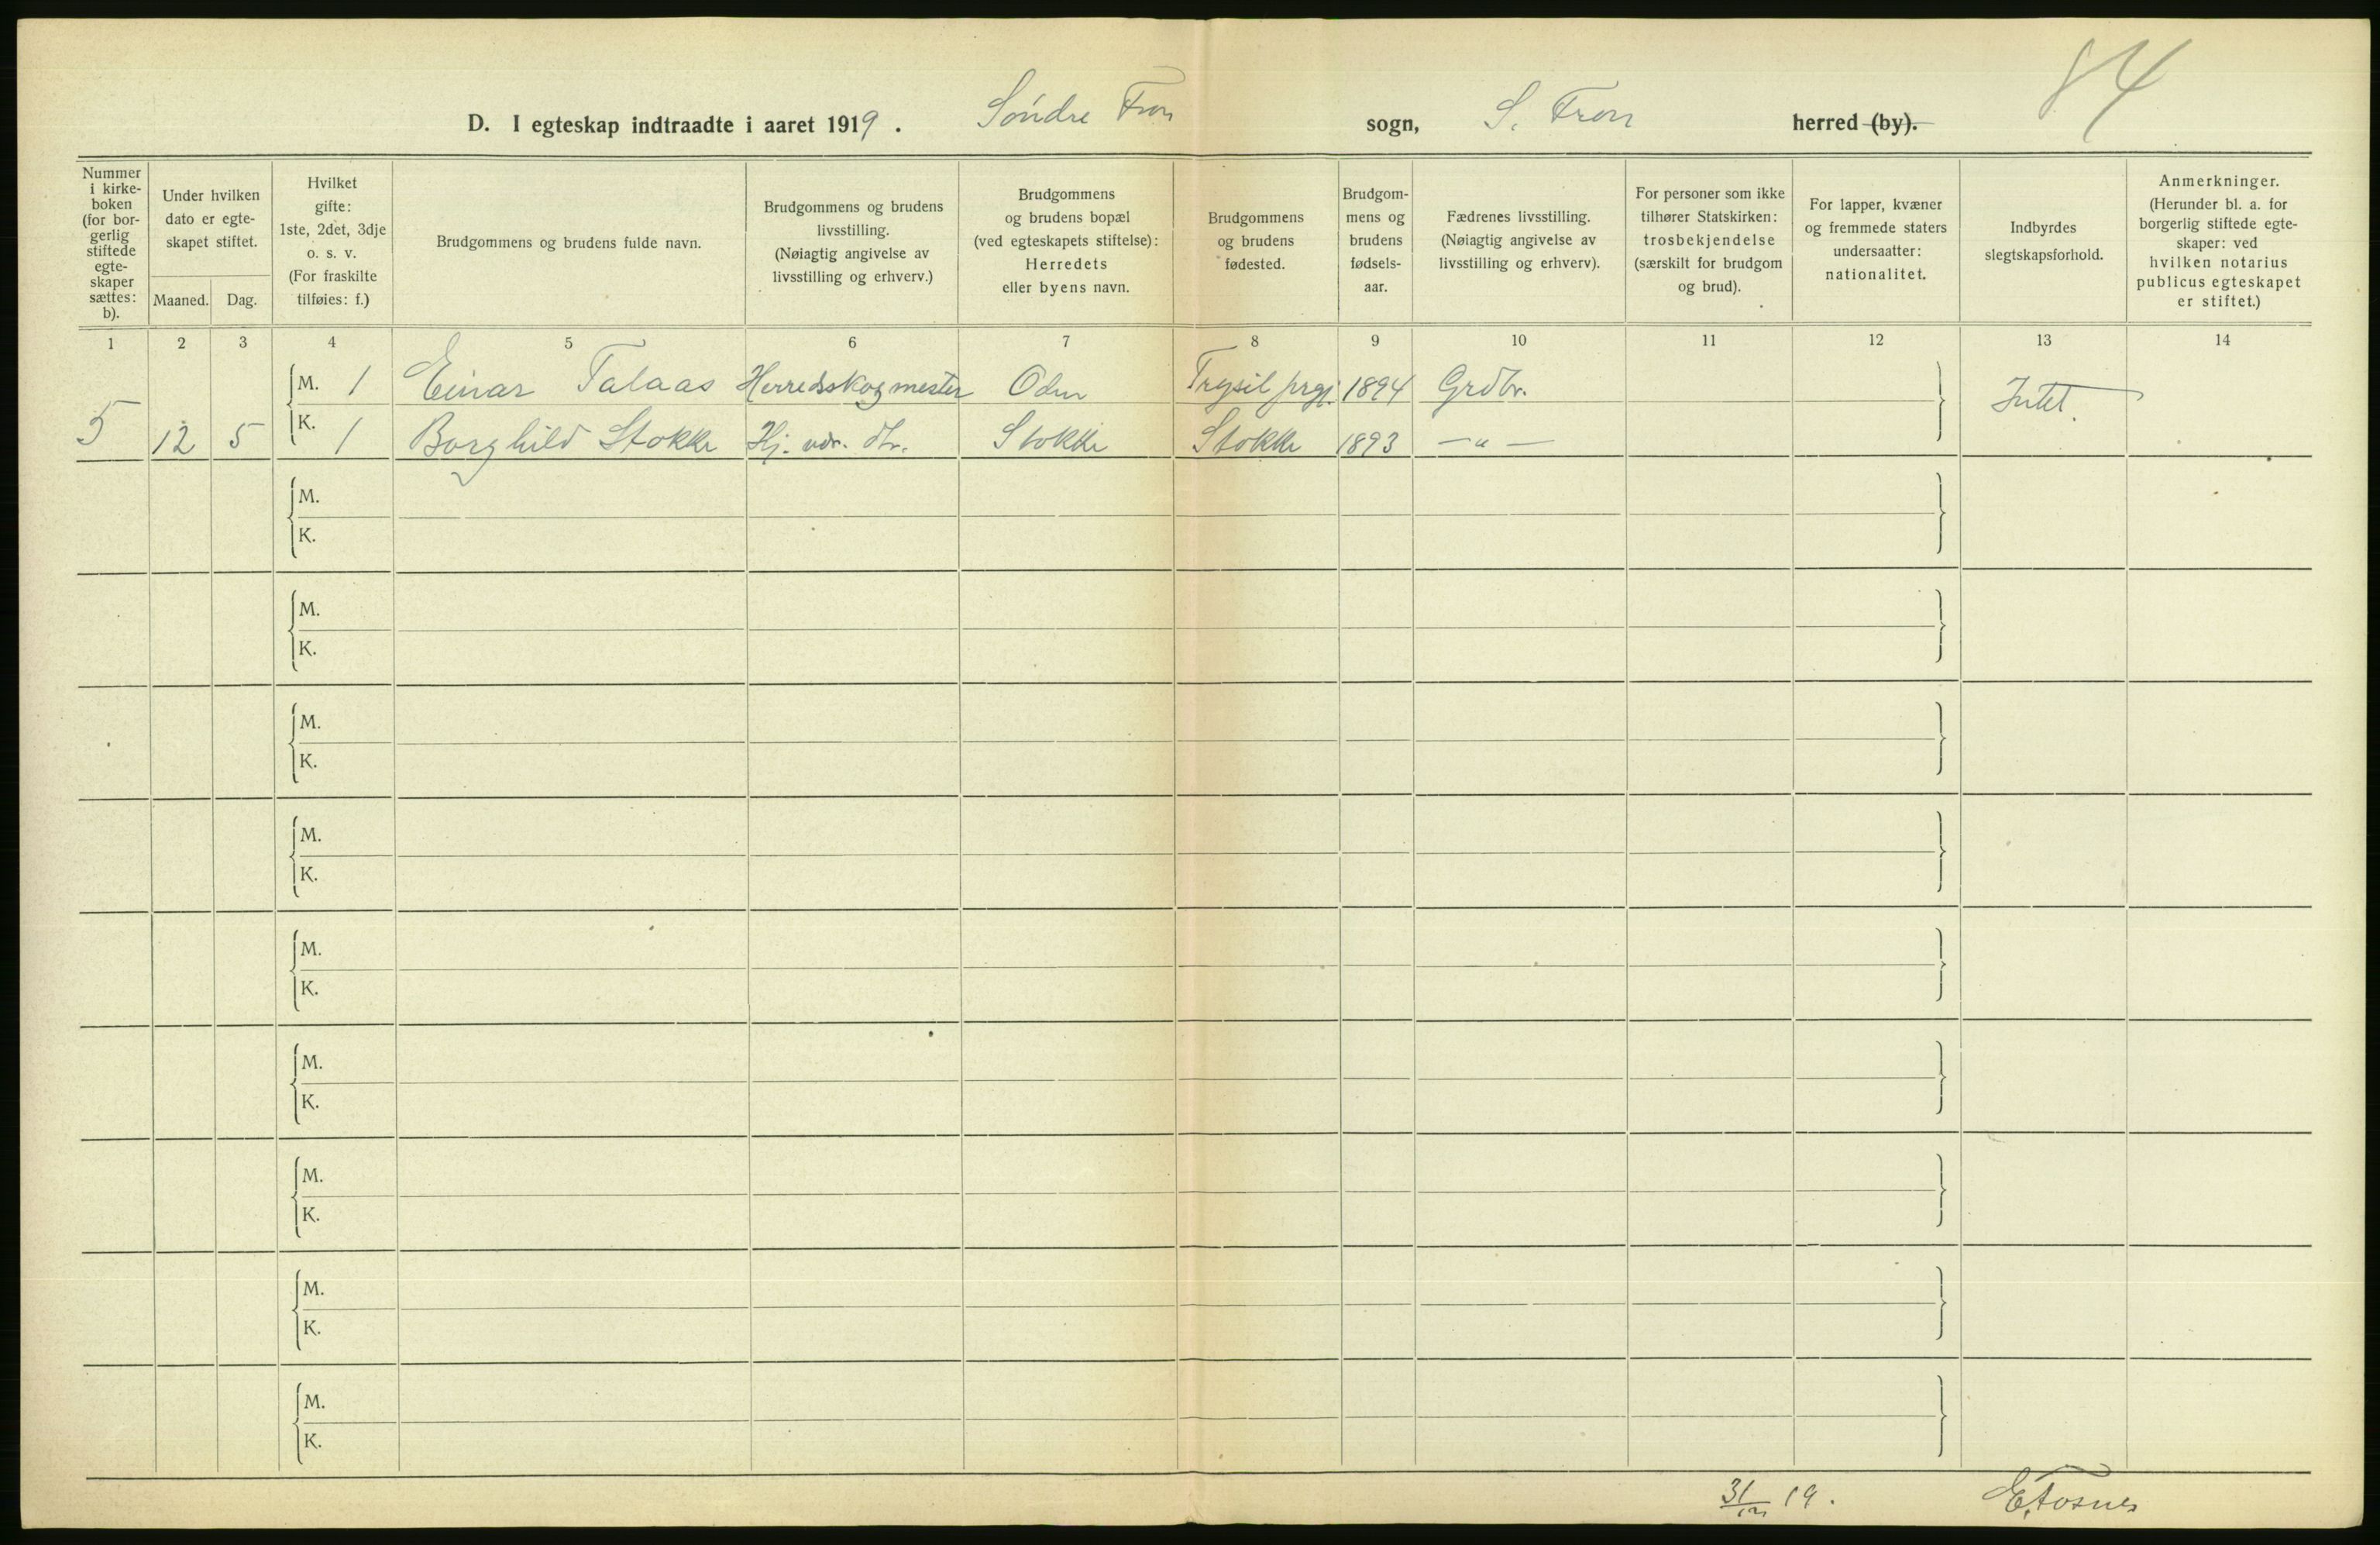 84
D. I egteskap indtraadte i aaret 1919. Søndre Fron sogn, S. Fron herred (by).
Nummer i kirke-boken (for bor-gerlig stiftede egte-skaper sættes: b).
Under hvilken dato er egte-skapet stiftet.
Maaned. Dag.
Hvilket gifte: 1ste, 2det, 3dje o. s. v. (For fraskilte tilføies: f.)
Brudgommens og brudens fulde navn.
Brudgommens og brudens livsstilling. (Nøiagtig angivelse av livsstilling og erhverv.)
Brudgommens og brudens bopæl (ved egteskapets stiftelse): Herredets eller byens navn.
Brudgommens og brudens fødested.
Brudgom-mens og brudens fødsels-aar.
Fædrenes livsstilling. (Nøiagtig angivelse av livsstilling og erhverv).
For personer som ikke tilhører Statskirken: trosbekjendelse (særskilt for brudgom og brud).
For lapper, kvæner og fremmede staters undersaatter: nationalitet.
Indbyrdes slegtskapsforhold.
Anmerkninger. (Herunder bl. a. for borgerlig stiftede egte-skaper: ved hvilken notarius publicus egteskapet er stiftet.)
1 2 3 4 5 6 7 8 9 10 11 12 13 14
M. 1 Einar Talaas Herredsskogmester Odm Trysil prgj. 1894 Grdbr. Intet.
5 12 5 K. 1 Borghild Stokke Hj. vær. dtr. Stokke Stokke 1893 — " —
M.
K.
M.
K.
M.
K.
M.
K.
M.
K.
M.
K.
M.
K.
M.
K.
M.
K.
31/12 19. E. Fosnes